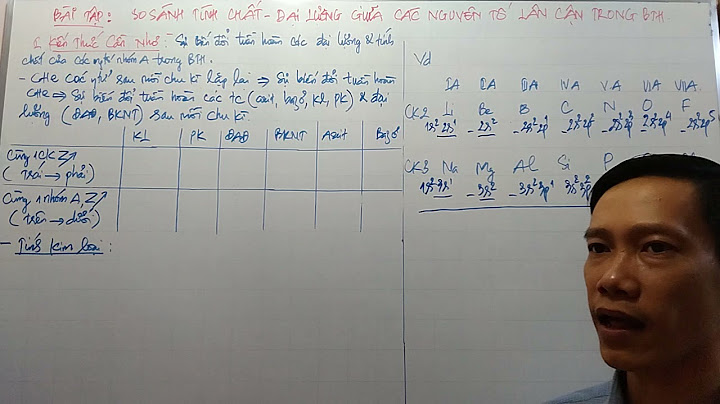 BÀI TẬP: SO SÁNH TÍNH CHẤT - ĐẠI LƯỢNG GIỮA CÁC NGUYÊN TỐ LÂN CẬN TRONG BTH.
1. Kiến Thức Cần Nhớ: Sự biến đổi tuần hoàn các đại lượng & tính
chất của các ngtử nhóm A trong BTH.
- CHe các ngtử sau mỗi chu kì lặp lại ⇒ Sự biến đổi tuần hoàn
CHe ⇒ Sự biến đổi tuần hoàn các tc (axit, bazơ, KL, PK) & đại
lượng (ĐAĐ, BKNT) sau mỗi chu kì.
KL PK ĐAĐ BKNT Axit Bazơ
Cùng 1 CK Z↗
(trái → phải)
Cùng 1 nhóm A, Z↗
(trên → dưới)
- Tính kim loại:
Vd
IA IIA IIIA IVA VA VIA VIIA
CK2 Li Be B C N O F
1s² 2s¹ - 2s² - 2s² 2p¹ - 2s² 2p² - 2s² 2p³ 2s² 2p⁴ - 2s² 2p⁵
CK3 Na Mg Al Si P
- 3s² - 3s² 3p¹ 3s² 3p²